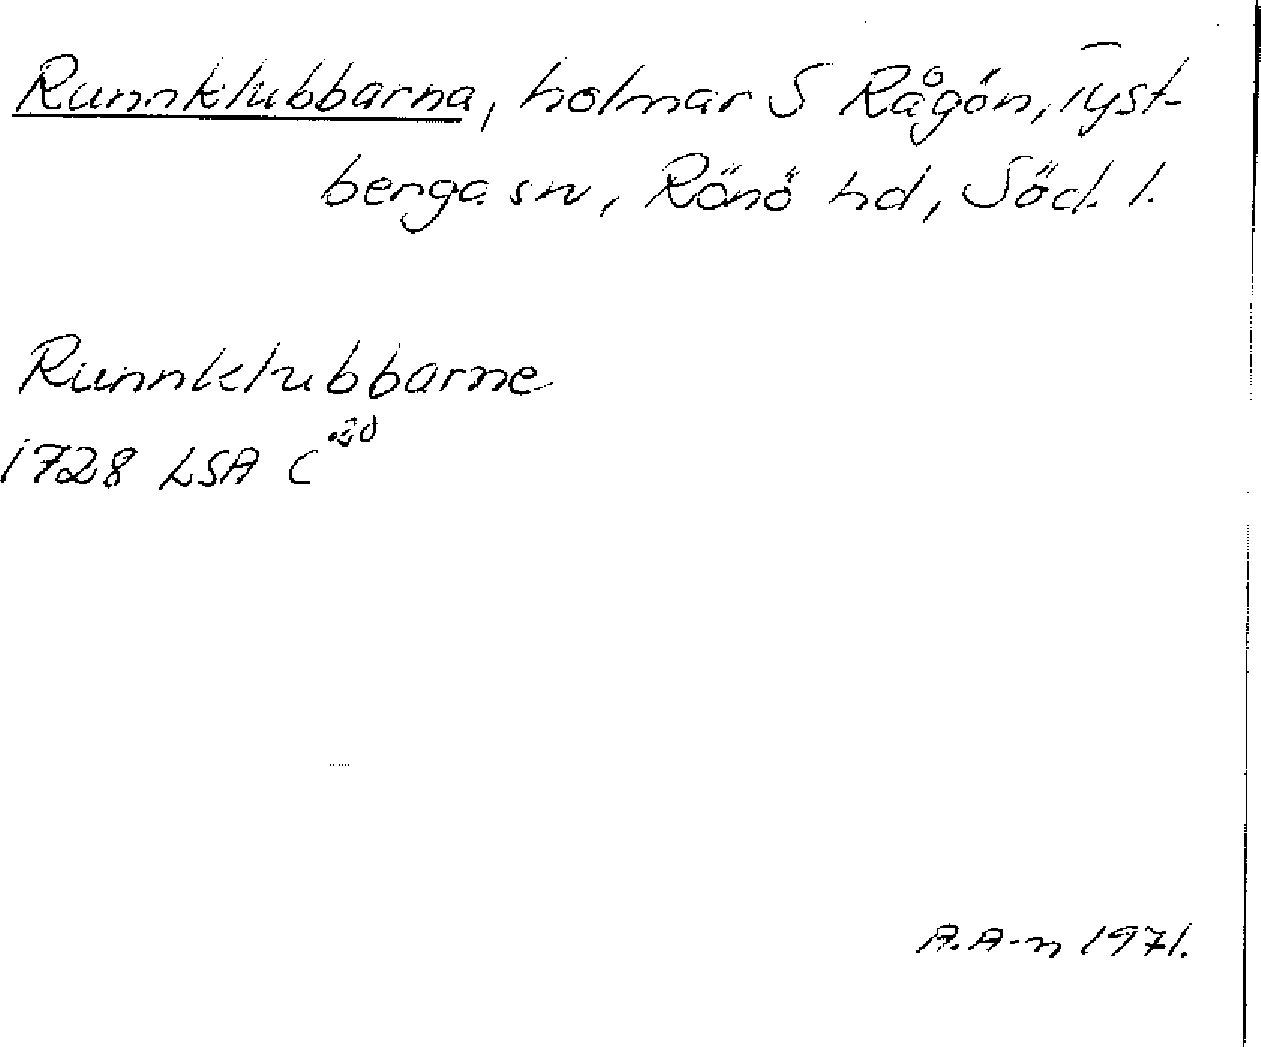 Runnklubbarna, holmar S Rågön, Tyst-
berga sn, Rönö hd, Söd. l.
Runnklubbarne
1728 LSA C 20
A. A-n 1971.